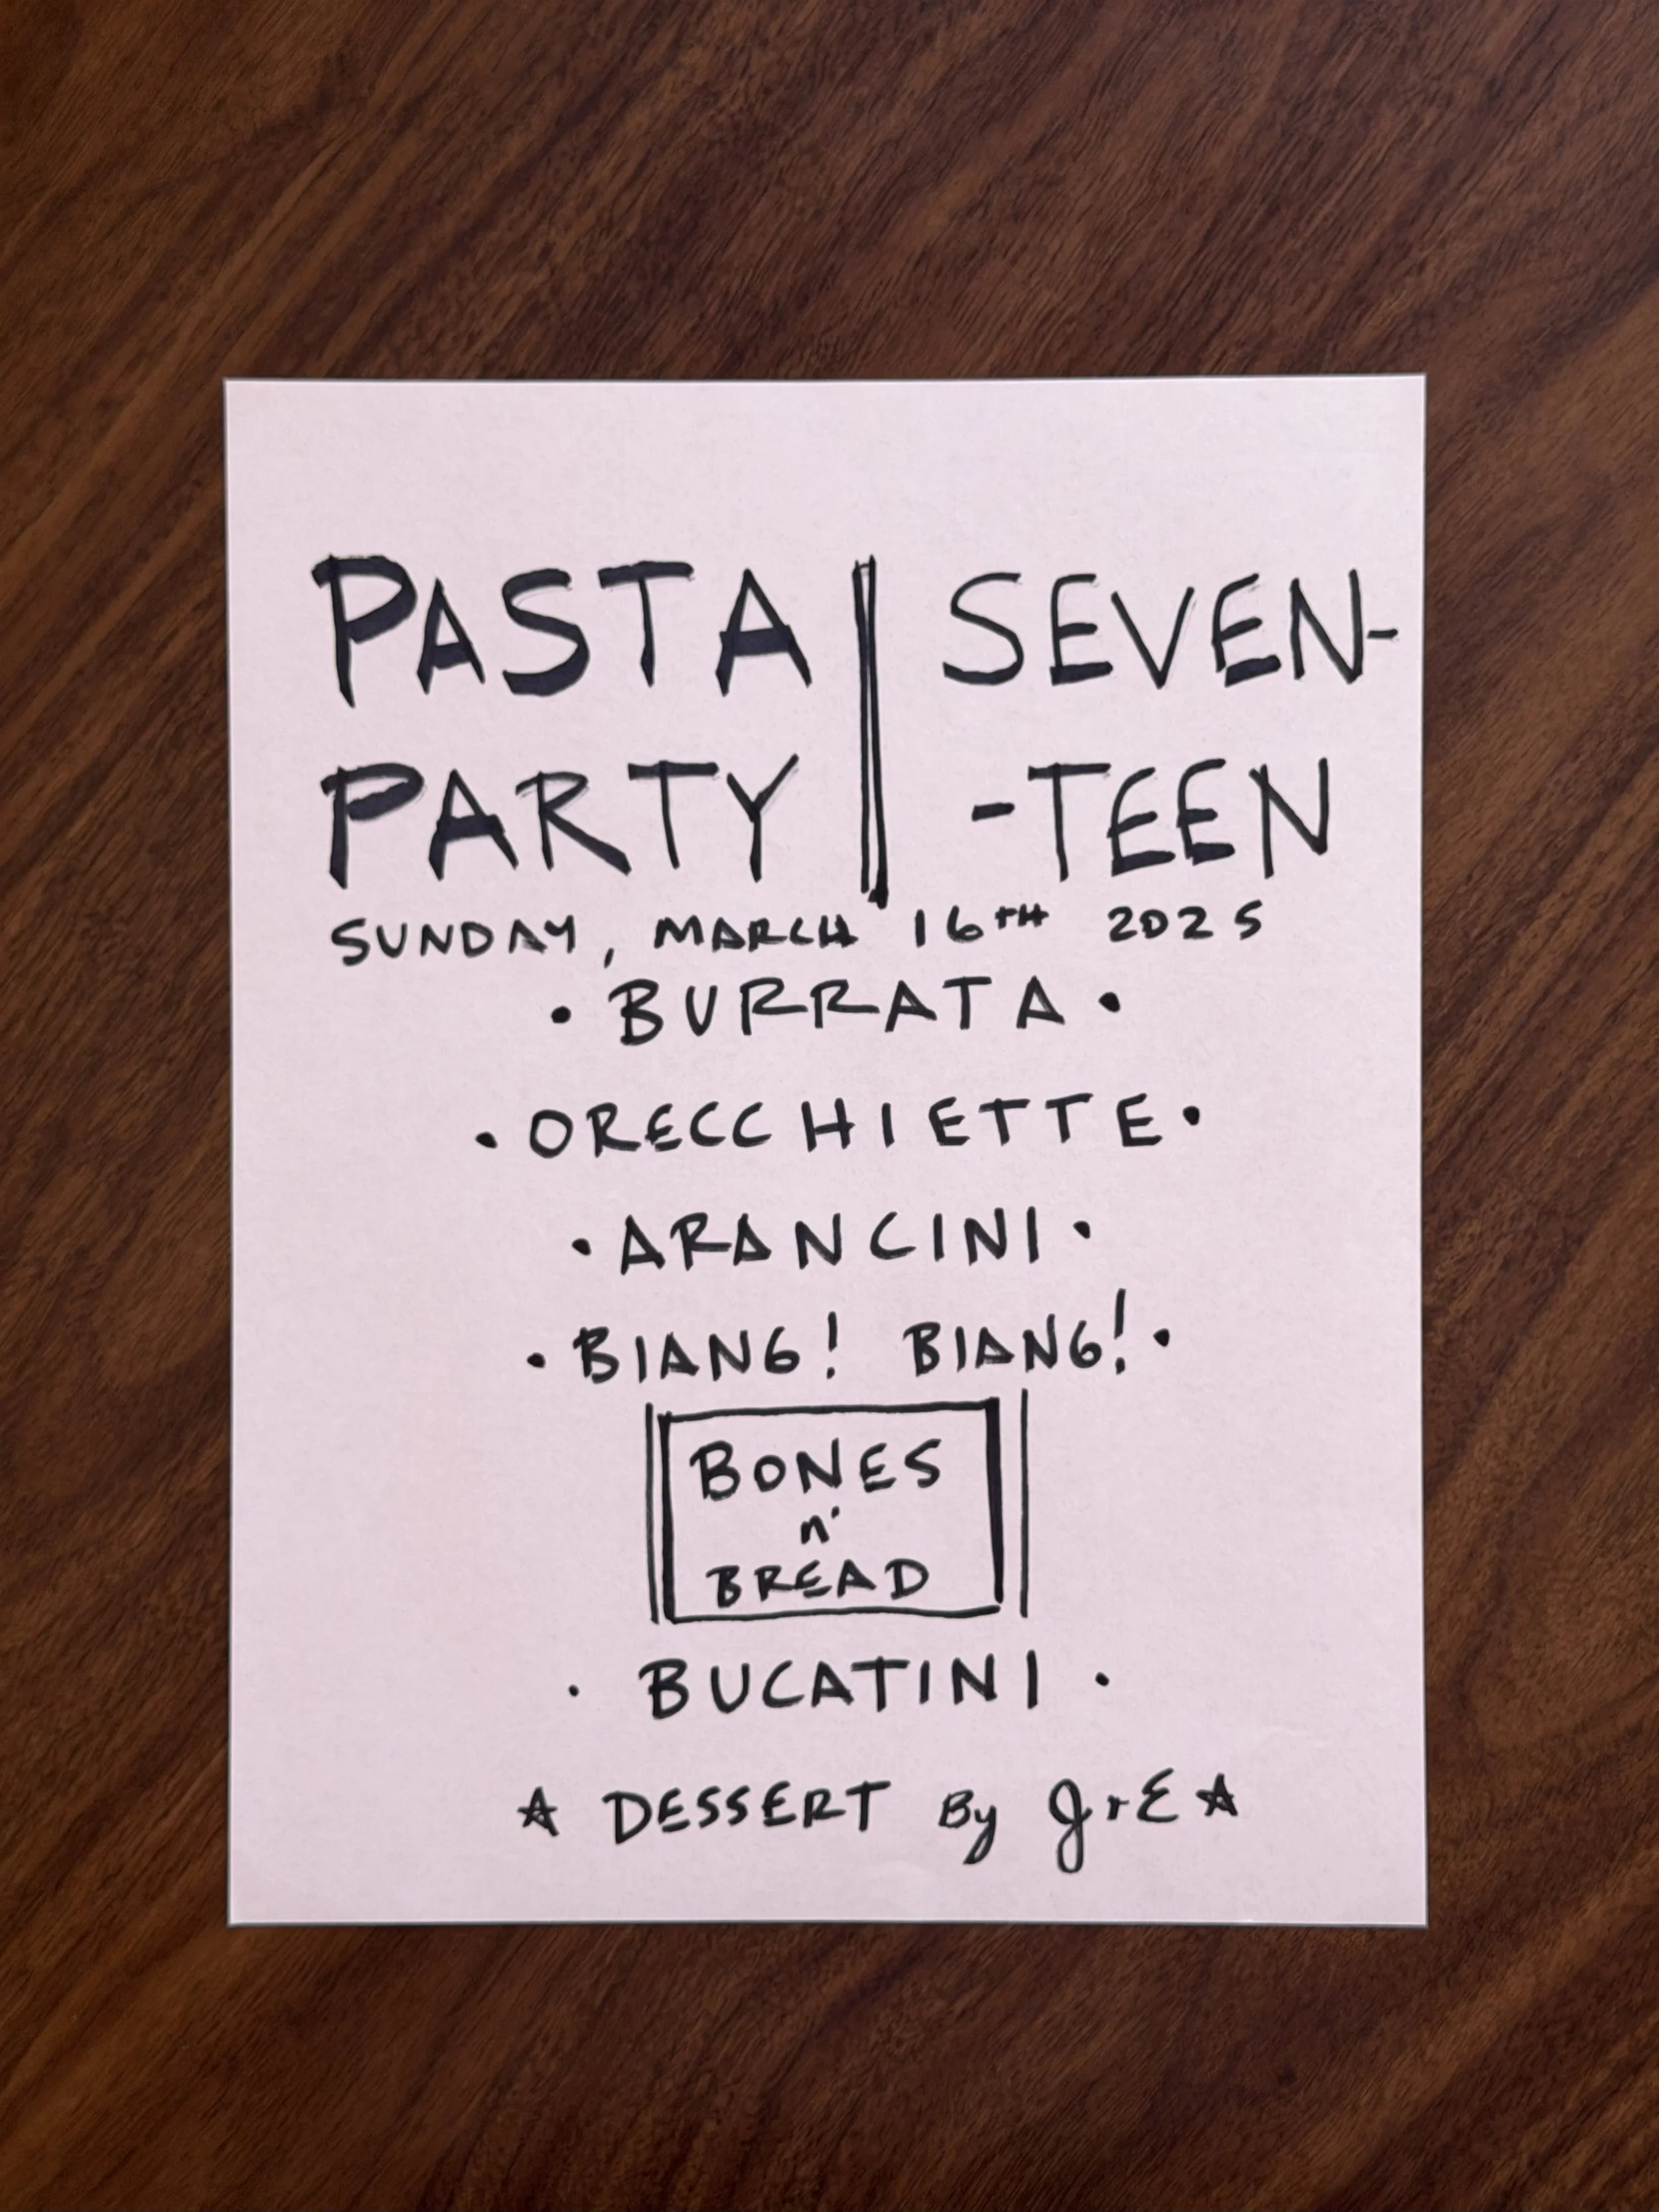 PASTA | SEVEN-
PARTY | -TEEN
SUNDAY, MARCH 16TH 2025
• BURRATA •
• ORECCHIETTE •
• ARANCINI •
• BIANG! BIANG! •
BONES
n'
BREAD
• BUCATINI •
☆ DESSERT By J+E ☆